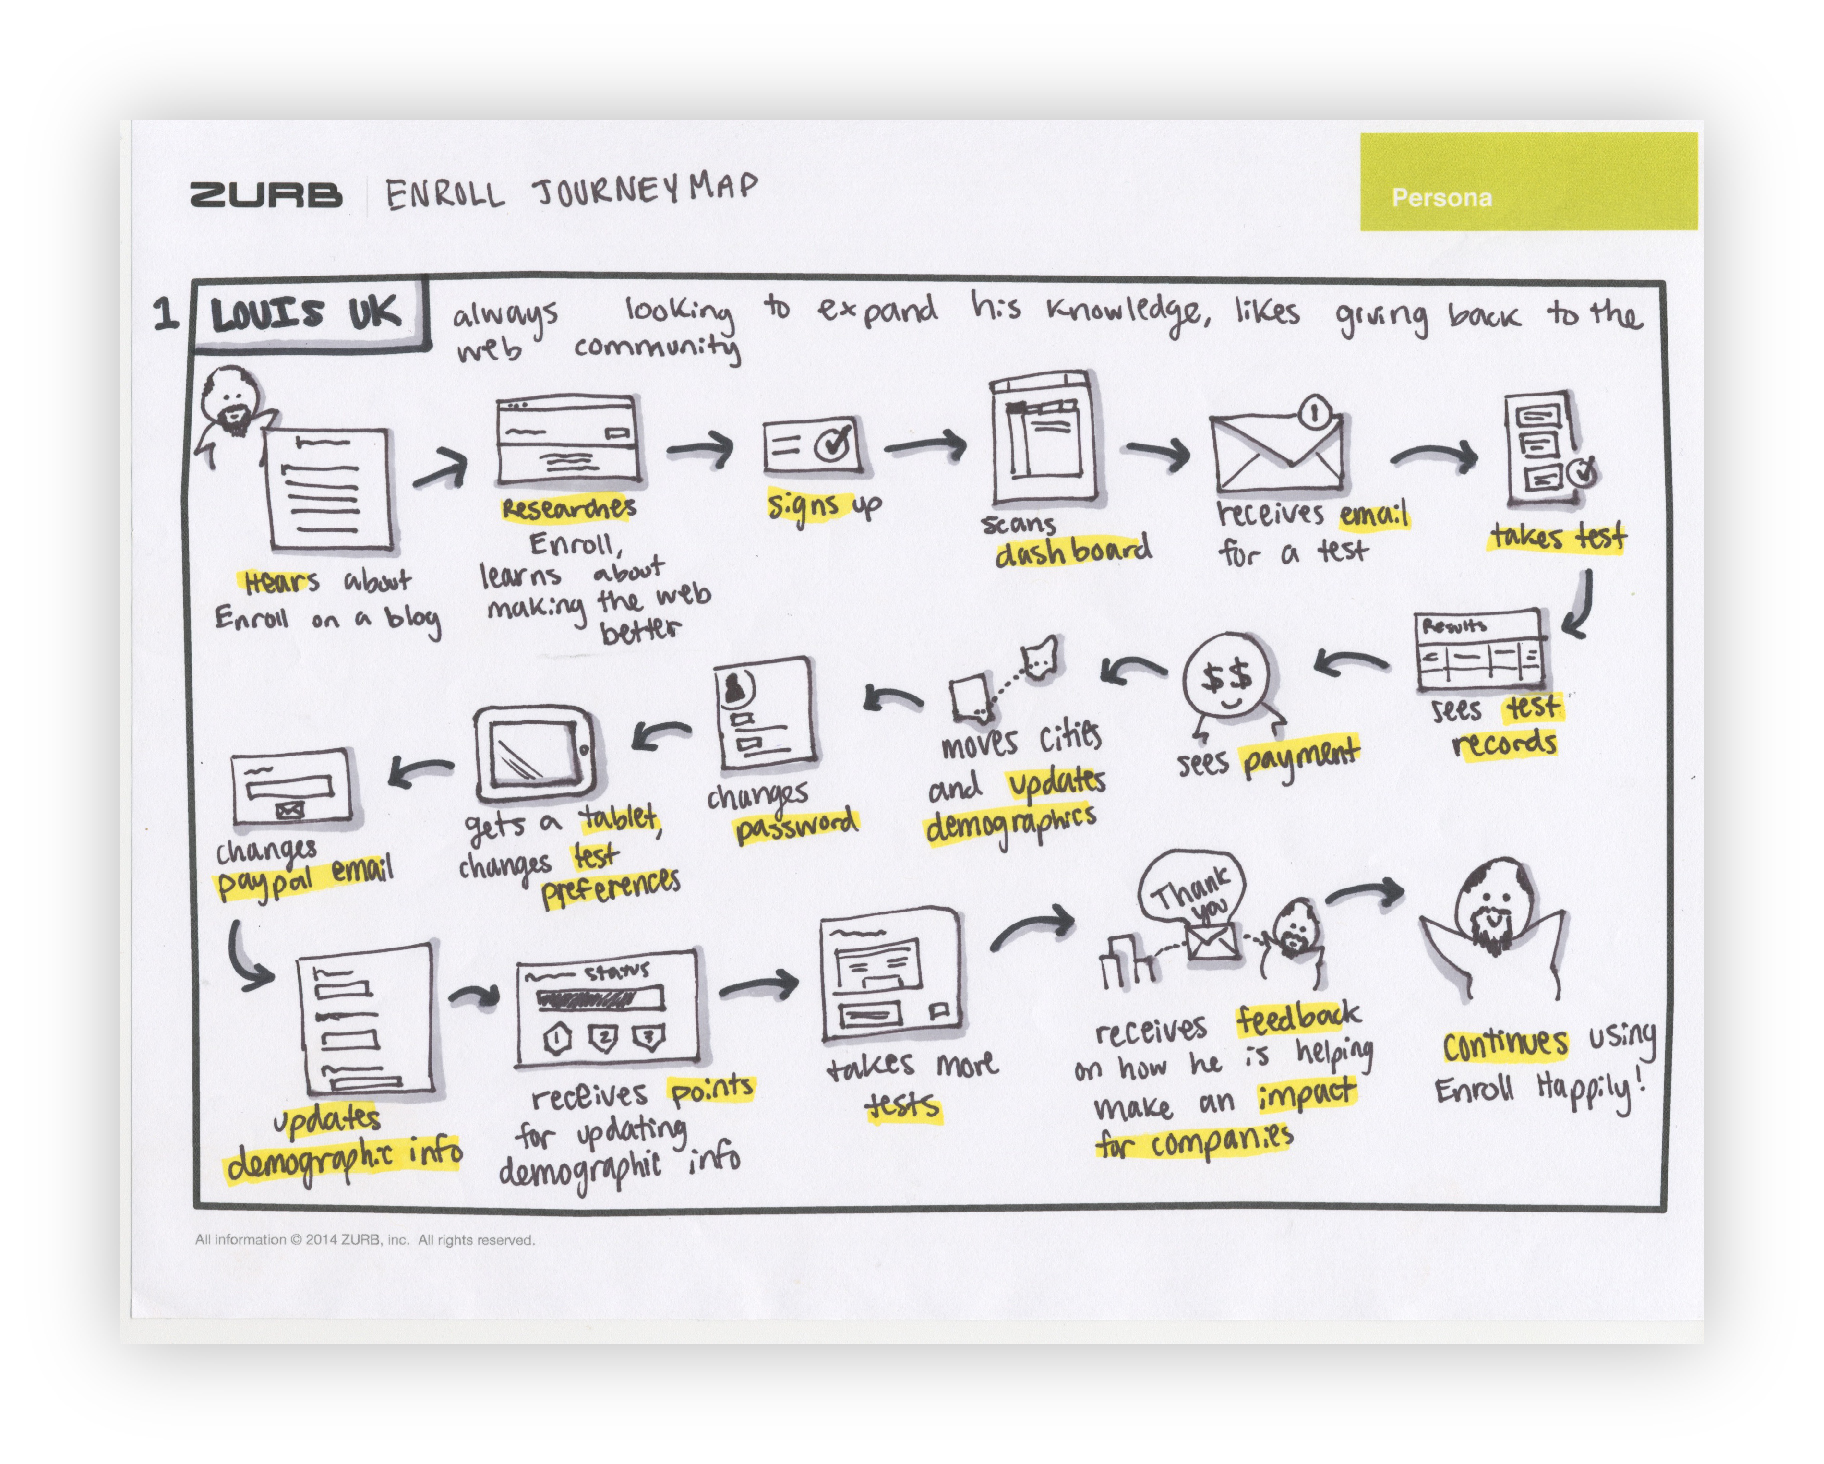 ZURB ENROLL JOURNEY MAP
Persona
1 LOUIS UK always looking to expand his knowledge, likes giving back to the
web community
Hears about
Enroll on a blog
Researches
Enroll,
learns about
making the web
better
signs up
scans
dashboard
1
receives email
for a test
takes test
Results
sees test
records
$$
sees payment
moves cities
and updates
demographics
changes
password
gets a tablet,
changes test
preferences
changes
paypal email
updates
demographic info
status
1 2 3
receives points
for updating
demographic info
takes more
tests
Thank
you
receives feedback
on how he is helping
make an impact
for companies
continues using
Enroll Happily!
All information © 2014 ZURB, inc. All rights reserved.